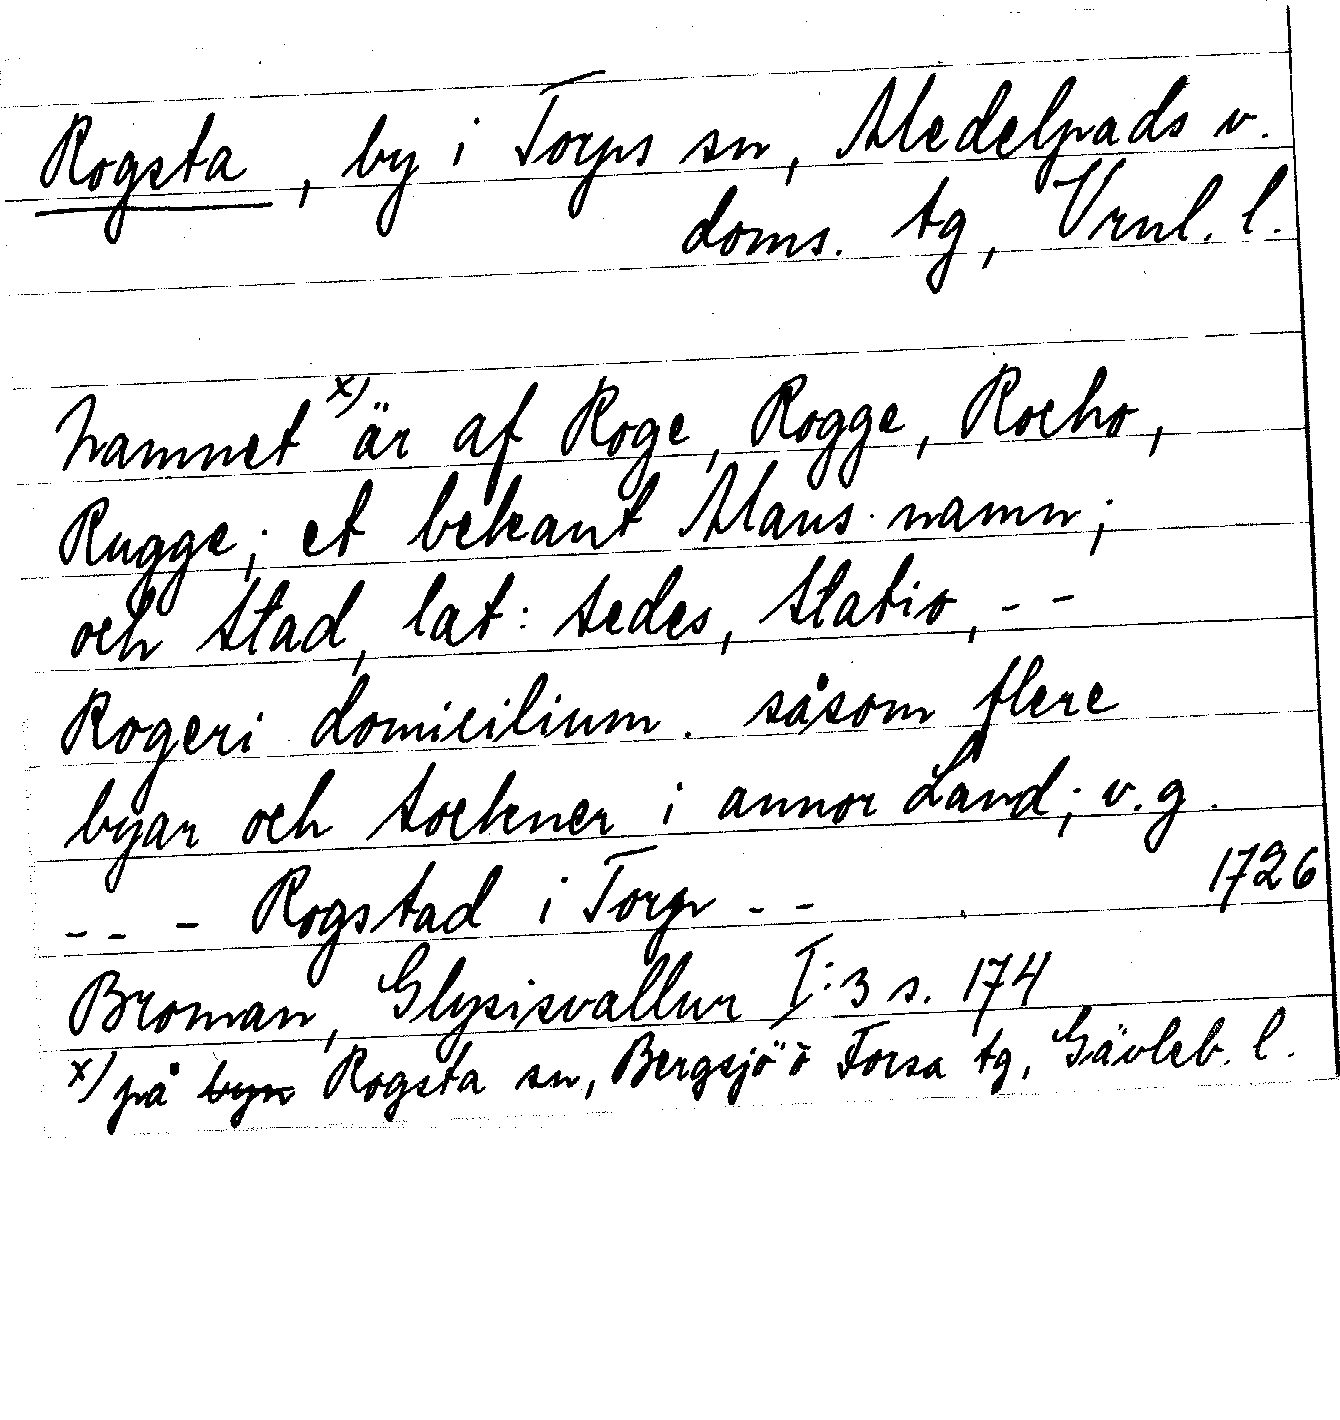 Rogsta, by i Torps sn, Medelpads v.
doms. tg, Vrnl. l.
Namnet x) är af Roge, Rogge, Rocho,
Rugge; et bekant Mans namn;
och Stad, lat: sedes, statio, - -
Rogeri domicilium. såsom flere
byar och sockner i annor Land; v.g.
- - - Rogstad i Torp - - 1726
Broman, Glysisvallur I:3 s. 174
x) på byn Rogsta sn, Bergsjö o Forsa tg, Gävleb. l.